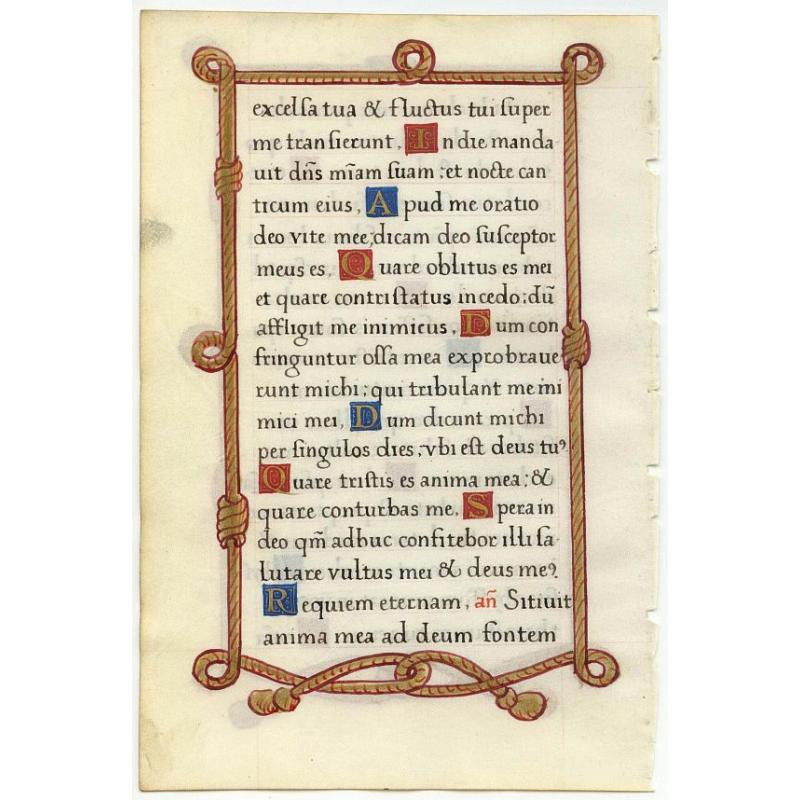 excelſa tua & fluctus tui ſuper
me tranſierunt, In die manda
uit dn̄s mīam ſuam : et nocte can
ticum eius, Apud me oratio
deo vite mee; dicam deo ſuſceptor
meus es, Quare oblitus es mei
et quare contriſtatus incedo : dū
affligit me inimicus, Dum con
fringuntur oſſa mea exprobraue
runt michi; qui tribulant me ini
mici mei, Dum dicunt michi
per ſingulos dies, vbi eſt deus tuꝰ
Quare triſtis es anima mea : &
quare conturbas me, Spera in
deo qm̄ adhuc confitebor illi ſa-
lutare vultus mei & deus meꝰ
Requiem eternam, an̄ Sitiuit
anima mea ad deum fontem